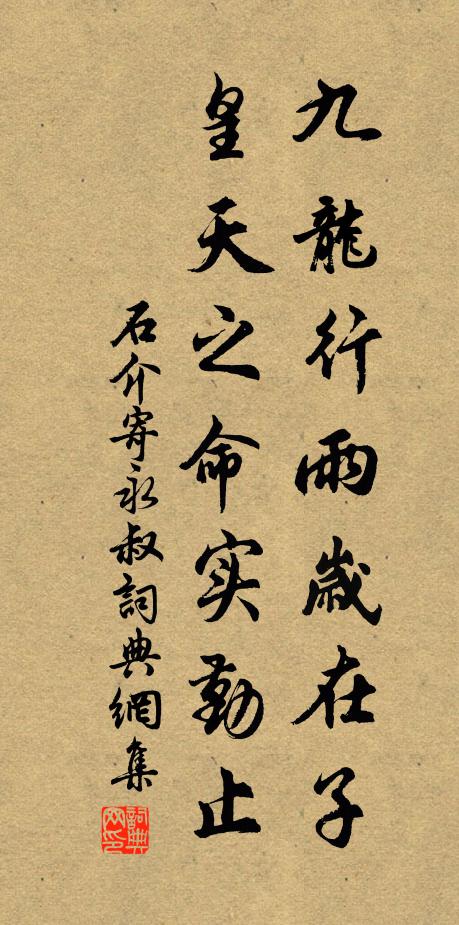 九龍行雨歲在子
皇天之命实勤止
石介寄永叔詞典網集
詞典网印